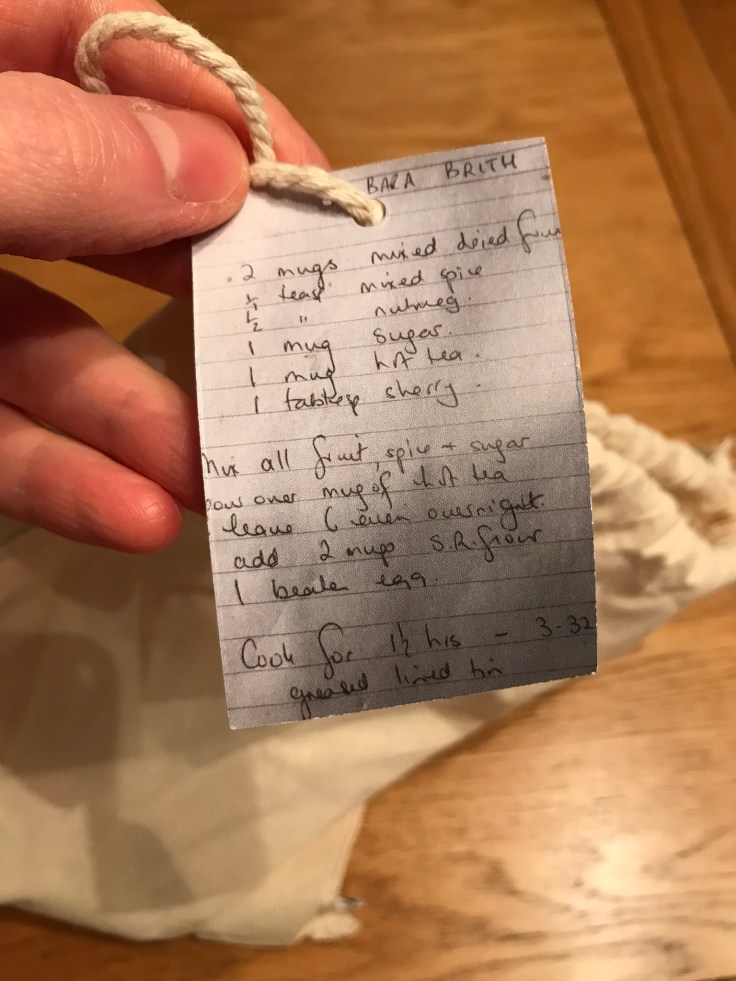 BARA BRITH
. 2 mugs mixed dried
teasp mixed spice
½ " nutmeg.
1 mug sugar.
1 mug hot tea.
1 tablesp sherry.
Mix all fruit, spice + sugar
pour over mug of hot tea
leave 6 even overnight.
add 2 mugs S.R. flour
1 beaten egg.
Cook for 1½ hrs - 3-32
greased lined tin